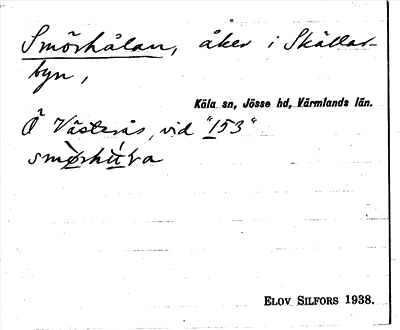 Smörhålan, åker i Skällar-
byn,
Köla sn, Jösse hd, Värmlands län.
Å Västerås, vid "153"
ELOV SILFORS 1938.